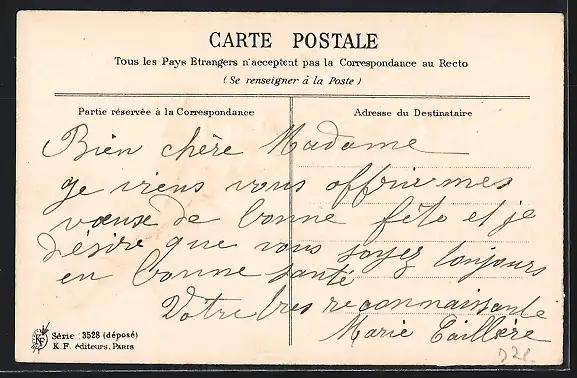 CARTE POSTALE
Tous les Pays Etrangers n'acceptent pas la Correspondance au Recto
(Se renseigner à la Poste)
Partie réservée à la Correspondance
Adresse du Destinataire
Bien chère Madame
Je viens vous offrir mes
vœux de bonne fête et je
désire que vous soyez toujours
en bonne santé
Votre tres reconnaissante
Marie Taillère
Série 3528 (déposé)
K. F. éditeurs, PARIS